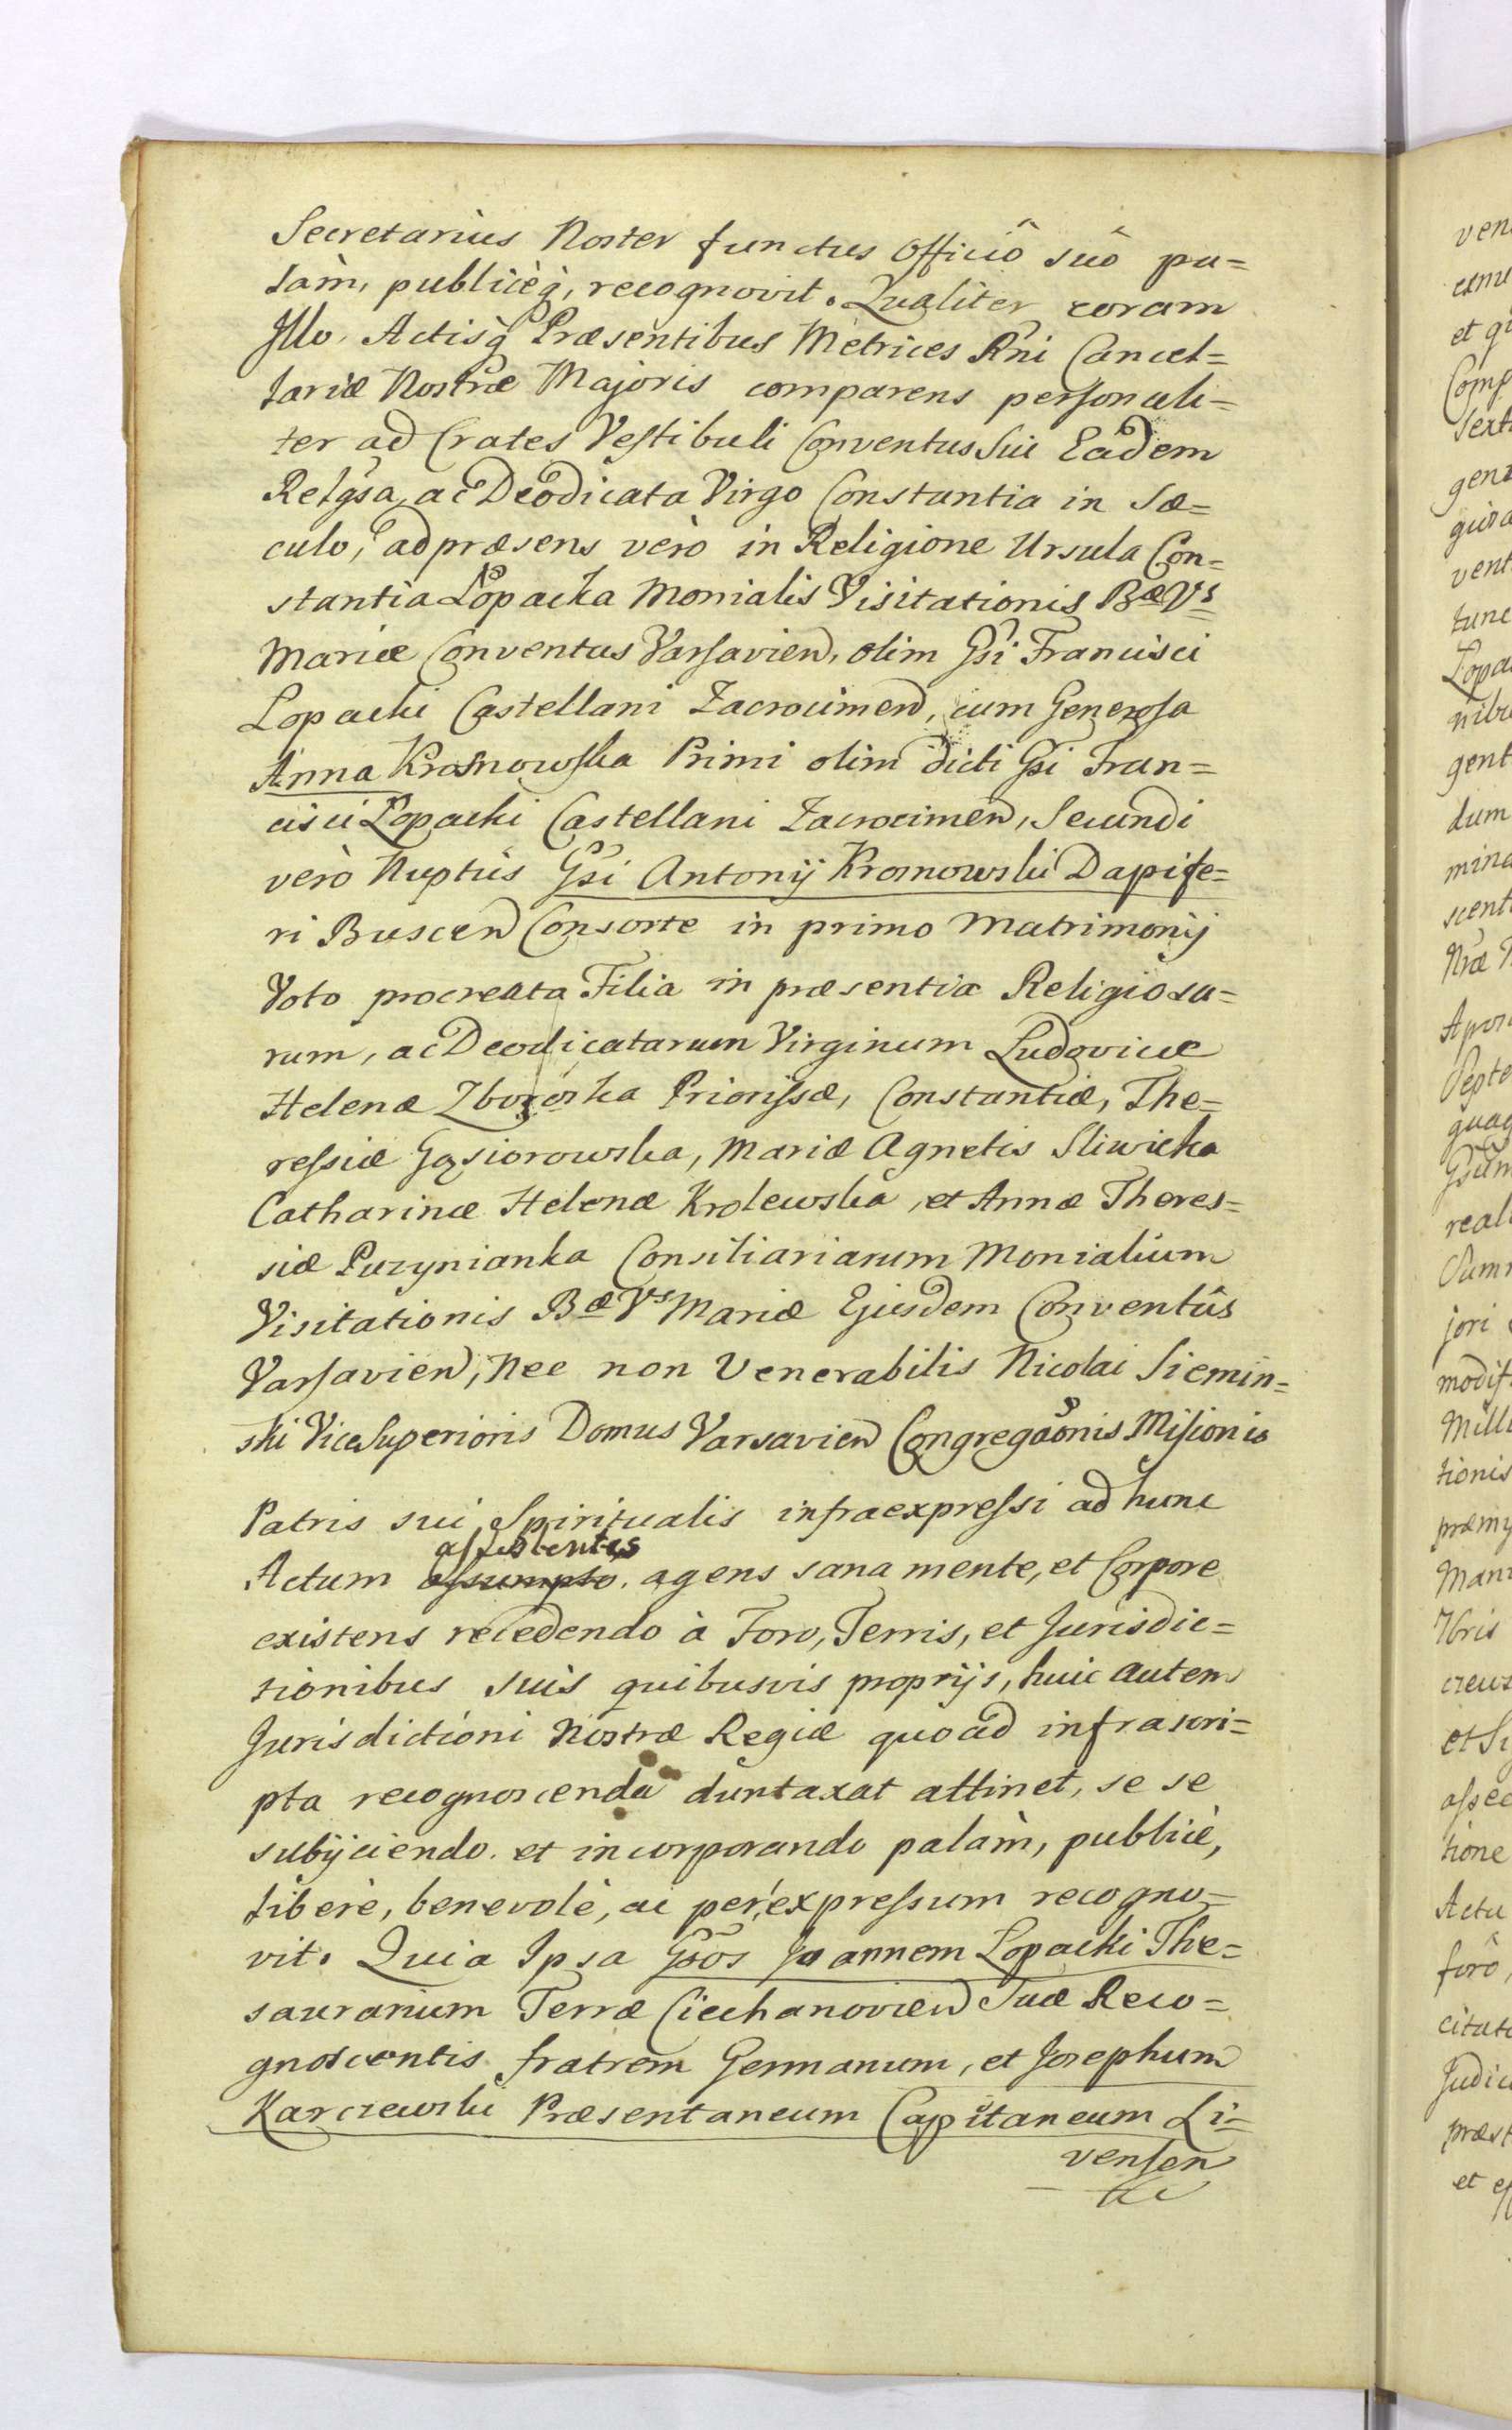 Secretarius Noster functus Officiô suô pa=
làm, publicèq, recognovit. Qualiter coram
Illo, Actisq Præsentibus Metrices Rni Cancel=
lariæ Nostræ Majoris comparens personali=
ter ad Crates Vestibuli Conventus sui Eadem
Relgsa, ac Deodicata Virgo Constantia in Sæ=
culo, ad præsens verò in Religione Ursula Con=
stantia Łopacka Monialis Visitationis Bæ Vs
Mariæ Conventus Varsavien, olim Gsi Francisci
Lopacki Castellani Zacrocimen, cum Generosa
Anna Krosnowska Primi olim dicti Gsi Fran=
cisci Lopacki Castellani Zacrocimen, Secundi
verò Nuptûs Gsi Antonij Krosnowski Dapife=
ri Buscen Consorte in primo Matrimonij
Voto procreata Filia in præsentia Religiosa=
rum, ac Deodicatarum Virginum Ludovicæ
Helenæ Zboroska Priorissæ, Constantiæ, The=
ressiæ Gąsiorowska, Mariæ Agnetis Sliwicka
Catharinæ Helenæ Krolewska, et Annæ Theres=
siæ Puzynianka Consiliariarum Monialium
Visitationis Bæ Vs Mariæ Ejusdem Conventûs
Varsavien, Nec non Venerabilis Nicolai Siemin=
ski ViceSuperioris Domus Varsavien Congregaonis Misionis
Patris sui Spiritualis infraexpressi ad hunc
assistentis
Actum assumpto. agens sana mente, et Corpore
existens recedendo à Foro, Terris, et Jurisdic=
tionibus suis quibusvis proprijs, huic autem
Jurisdictioni Nostræ Regiæ quoad infrascri=
pta recognoscenda duntaxat attinet, se se
subijciendo et incorporando palàm, publicè,
liberè, benevolè, ac per expressum recogno=
vit. Quia Ipsa Gsos Joannem Lopacki The=
saurarium Terræ Ciechanovien Suæ Reco=
gnoscentis fratrem Germanum, et Josephum
Karczewski Præsentaneum Capitaneum Li=
vensen
ven
et
Comp
Sext
gene
vent
tunc
Lopa
nibu
gent
dum
mina
scent
Nræ
Septe
quaq
Gsum
real
Sum
jori
modif
Mill
tionis
præmy
Mani
et Si
tione
Actu
forô,
citat
Judic
præst
et